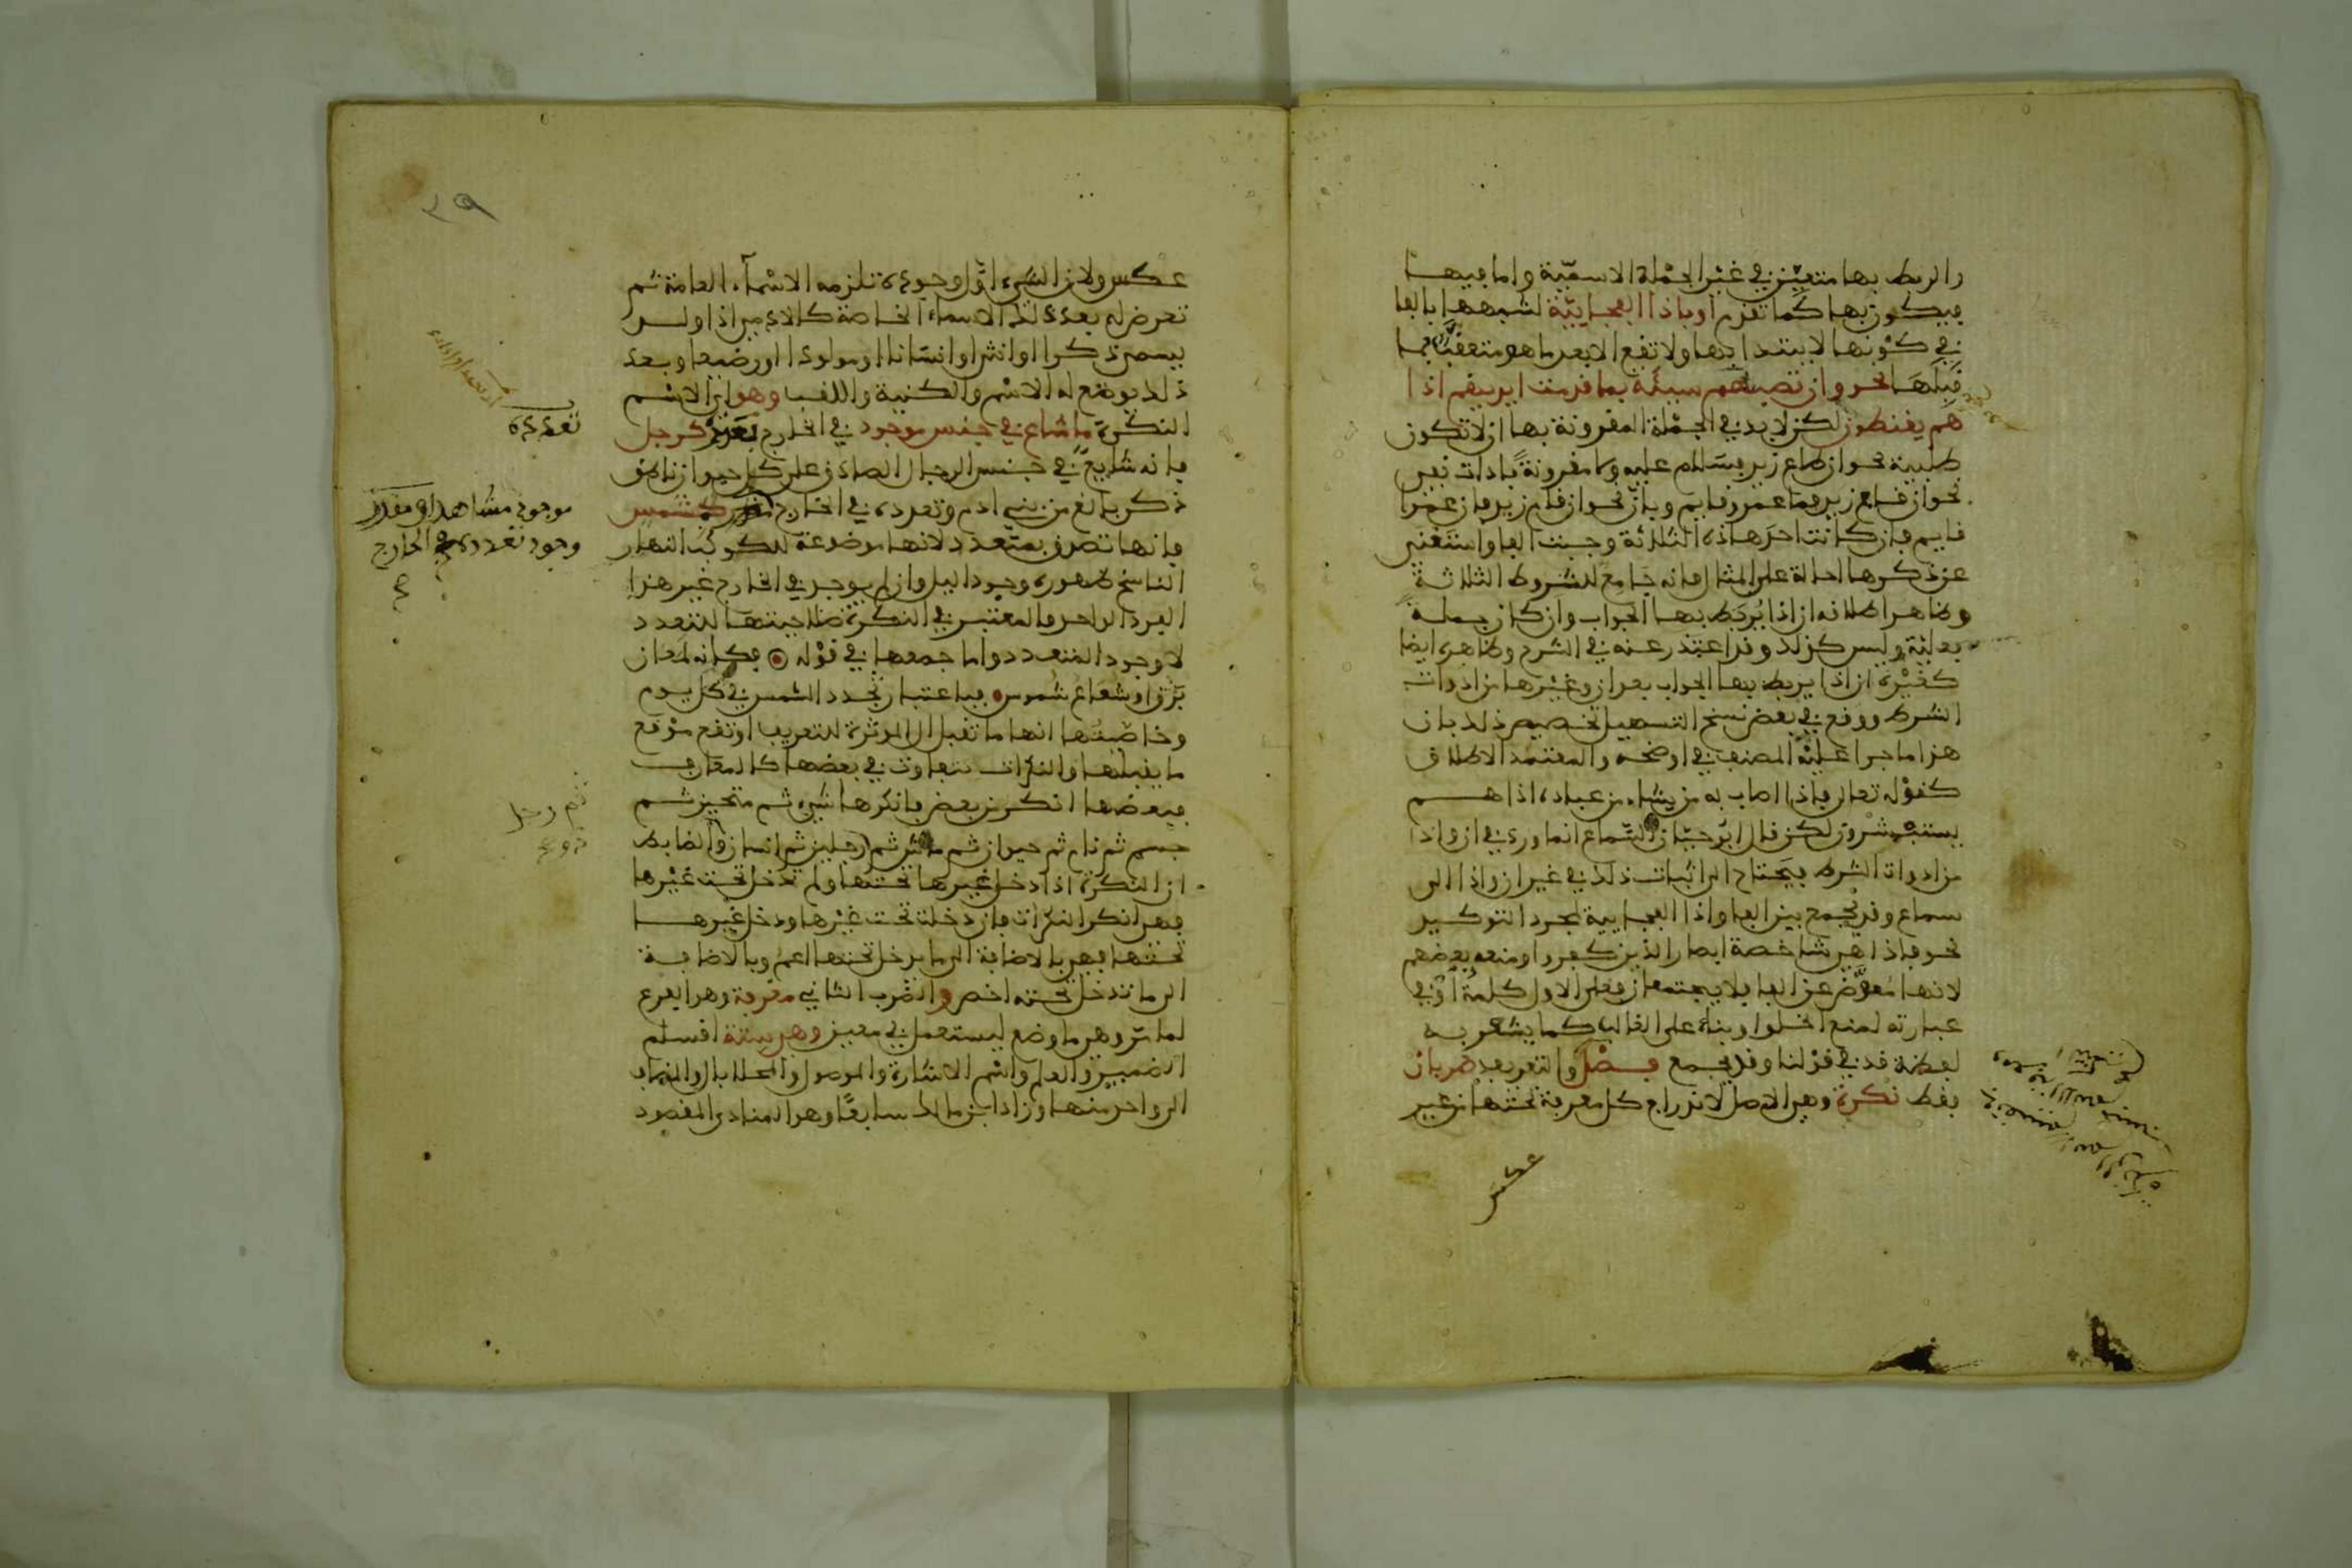 والربط بها متعين في غير الجملة الاسمية واما فيها
فيكون بها كما تقدم او باذا الفجاييّة لشبهها بالفا
في كونها لا يبتدا بها ولا تقع الا بعد ما هو متعقب بما
قبلها نحو وان تصبهم سيئة بما قدمت ايديهم اذا
هم يقنطون لكن لا بد في الجملة المقرونة بها ان لا تكون
طلبية نحو ان طاع زيد فسلام عليه ولا مقرونة باداة نفي
نحو ان قام زيد فما عمرو قايم ولا بان نحو ان قام زيد فان عمرا
قايم فان كانت احد هاذه الثلاثة وجبت الفا واستغنى
عن ذكرها احالة على المثال فانه جامع للشروط الثلاثة
وظاهر اطلاقه ان اذا يربط بها الجواب وان كان جملة
فعلية وليس كذلك وقد اعتذر عنه في الشرح وظاهره ايضا
كغيره ان اذا يربط بها الجواب بعد ان وغيرها من ادوات
الشرط ووقع في بعض نسخ التسهيل تخصيص ذلك بان
هذا ما جرا عليه المصنف في اوضحه والمعتمد الاطلاق
كقوله تعالى فاذا اصاب به من يشاء من عباده اذا هم
يستبشرون لكن قال ابو حيان السماع انما ورد في ان واذا
من ادوات الشرط فيحتاج الى اثبات ذلك في غير ان واذا الى
سماع وقد يجمع بين الفا واذا الفجايية لمجرد التوكيد
نحو فاذا هي شاخصة ابصار الذين كفروا ومنعه بعضهم
لانها عوض عن الفا فلا يجتمعان فعلى الاول كلمة او في
عبارته لمنع الخلو او بناء على الغالب كما يشعر به
لفظة قد في قولنا وقد يجمع فصل والتعريف ضربان
فقط نكرة وهي الاصل لاندراج كل معرفة تحتها من غير
عكس
٢٩
عكس ولان الشيء اول وجوده تلزمه الاسماء العامة ثم
تعرض له بعد ذلك الاسماء الخاصة كالادمي اذا ولد
يسمى ذكرا او انثى او انسانا او مولودا او رضيعا وبعد
ذلك يوضع له الاسم والكنية واللقب وهو اي الاسم
النكرة ما شاع في جنس موجود في الخارج تعدده كرجل
فانه شايع في جنس الرجال الصادق على كل حيوان ناطق
ذكر بالغ من بني ادم وتعدده في الخارج كشمس
فانها تصدق بمتعدد لانها موضوعة للكوكب النهاري
الناسخ ظهوره وجود الليل وان لم يوجد في الخارج غير هذا
الفرد الواحد والمعتبر في النكرة صلاحيتها للتعدد
لا وجود المتعدد واما جمعها في قوله فكانه لمعان
برق او شعاع شموس فباعتبار تجدد الشمس في كل يوم
وخاصتها انها ما تقبل ال المؤثرة للتعريف او تقع موقع
ما يقبلها والنكرات تتفاوت في بعضها كالمعارف
فبعضها انكر من بعض فانكرها شيء ثم متحيز ثم
جسم ثم نام ثم حيوان ثم ماش ثم ذو رجلين ثم انسان والضابط
ان النكرة اذا دخل غيرها تحتها ولم تدخل تحت غيرها
فهي انكر النكرات فان دخلت تحت غيرها ودخل غيرها
تحتها فهي بالاضافة الى ما يدخل تحتها اعم وبالاضافة
الى ما تدخل تحته اخص والضرب الثاني معرفة وهو الفرع
لما مر وهو ما وضع ليستعمل في معين وهي ستة اقسام
الضمير والعلم واسم الاشارة والموصول والمحلا بال والمضاف
الى واحد منها وزاد ابن مالك سابعا وهو المنادى المقصود
تعدده
موجود مشاهدا او مقدر
وجود تعدده في الخارج
ثم رجل